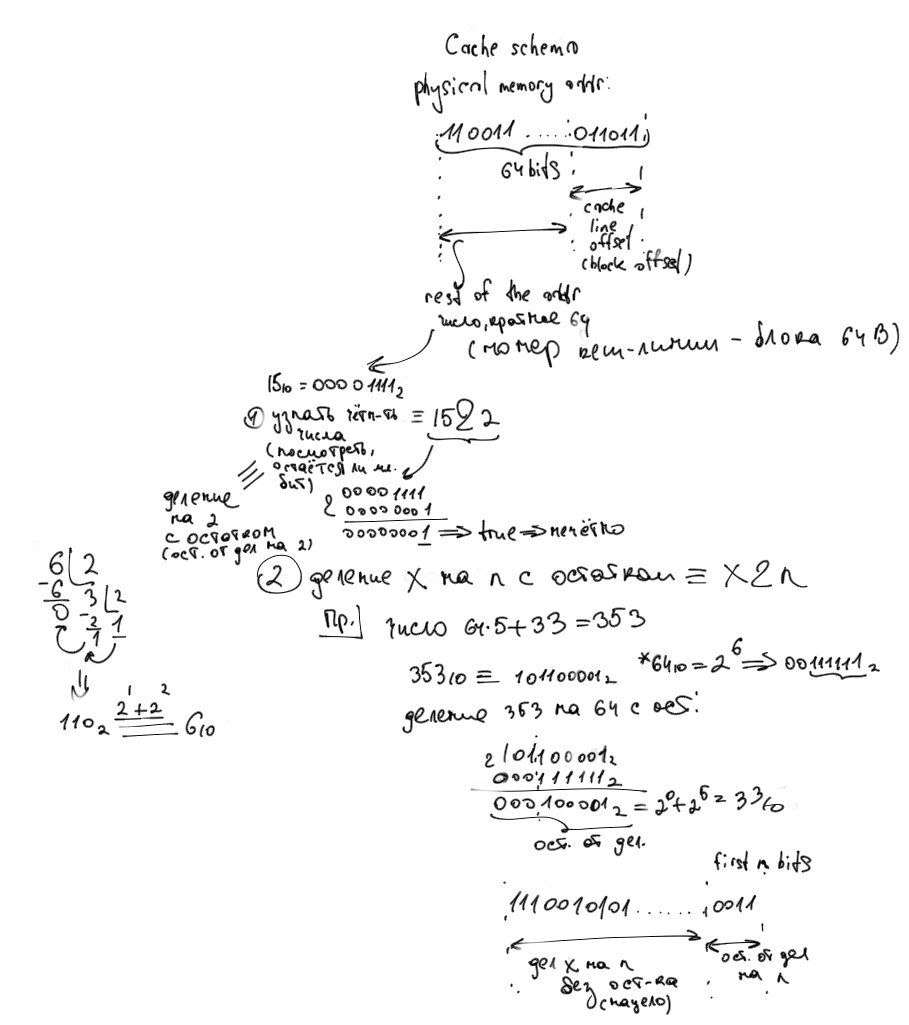 Cache scheme
physical memory addr:
110011.....011011
64 bits
cache
line
offset
(block offset)
rest of the addr
число, кратное 64
(номер кеш-линии - блока 64B)
15₁₀ = 00001111₂
① узнать чётн-ть ≡ 15 & 2
числа
(посмотреть,
остаётся ли мл.
бит)
деление
на 2
с остатком
(ост. от дел на 2)
& 00001111
00000001
00000001 ⇒ true ⇒ нечётко
6 2
-6 3 2
0 -2 1
1
110₂ 2¹+2² 6₁₀
② деление x на n с остатком ≡ x & n
Пр. число 64·5+33=353
353₁₀ ≡ 101100001₂ *64₁₀ = 2⁶ ⇒ 00111111₂
деление 353 на 64 с ост:
& 101100001₂
000111111₂
000100001₂ = 2⁰+2⁵ = 33₁₀
ост. от дел.
first n bits
1110010101.......0011
дел x на n
без ост-ка
(нацело)
ост. от дел
на n